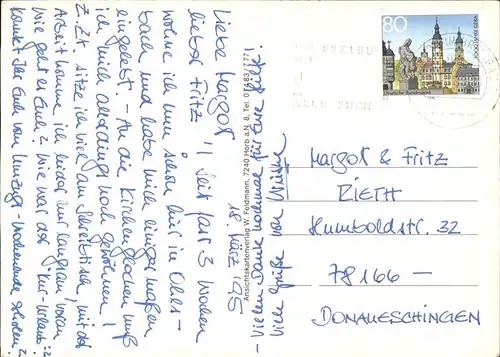 18. März '95
Liebe Margot,
lieber Fritz!! Seit fast 3 Wochen
wohne ich nun schon hier in Ober-
bach und habe mich einigermaßen
eingelebt - An die Kirchenglocken muß
ich mich allerdings noch gewöhnen!
Z. Zt. sitze ich viel am Schreibtisch, mit der
Arbeit komme ich leider nur langsam voran
Wie geht es Euch? Wie war der -Urlaub?
Könnt Ihr Euch vom Umzugs-Wochenende erholen?
- Vielen Dank nochmal für Eure Hilfe!
Viele Grüße von
Ansichtskartenverlag W. Feldmann, 7240 Horb a.N. 8, Tel. 07483/1771
80
Margot & Fritz
RIETH
Humboldtstr. 32
78166 -
DONAUESCHINGEN